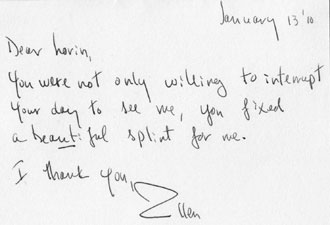 January 13 '10
Dear Lorin,
You were not only willing to interrupt
your day to see me, you fixed
a beautiful splint for me.
I thank you,
Ellen